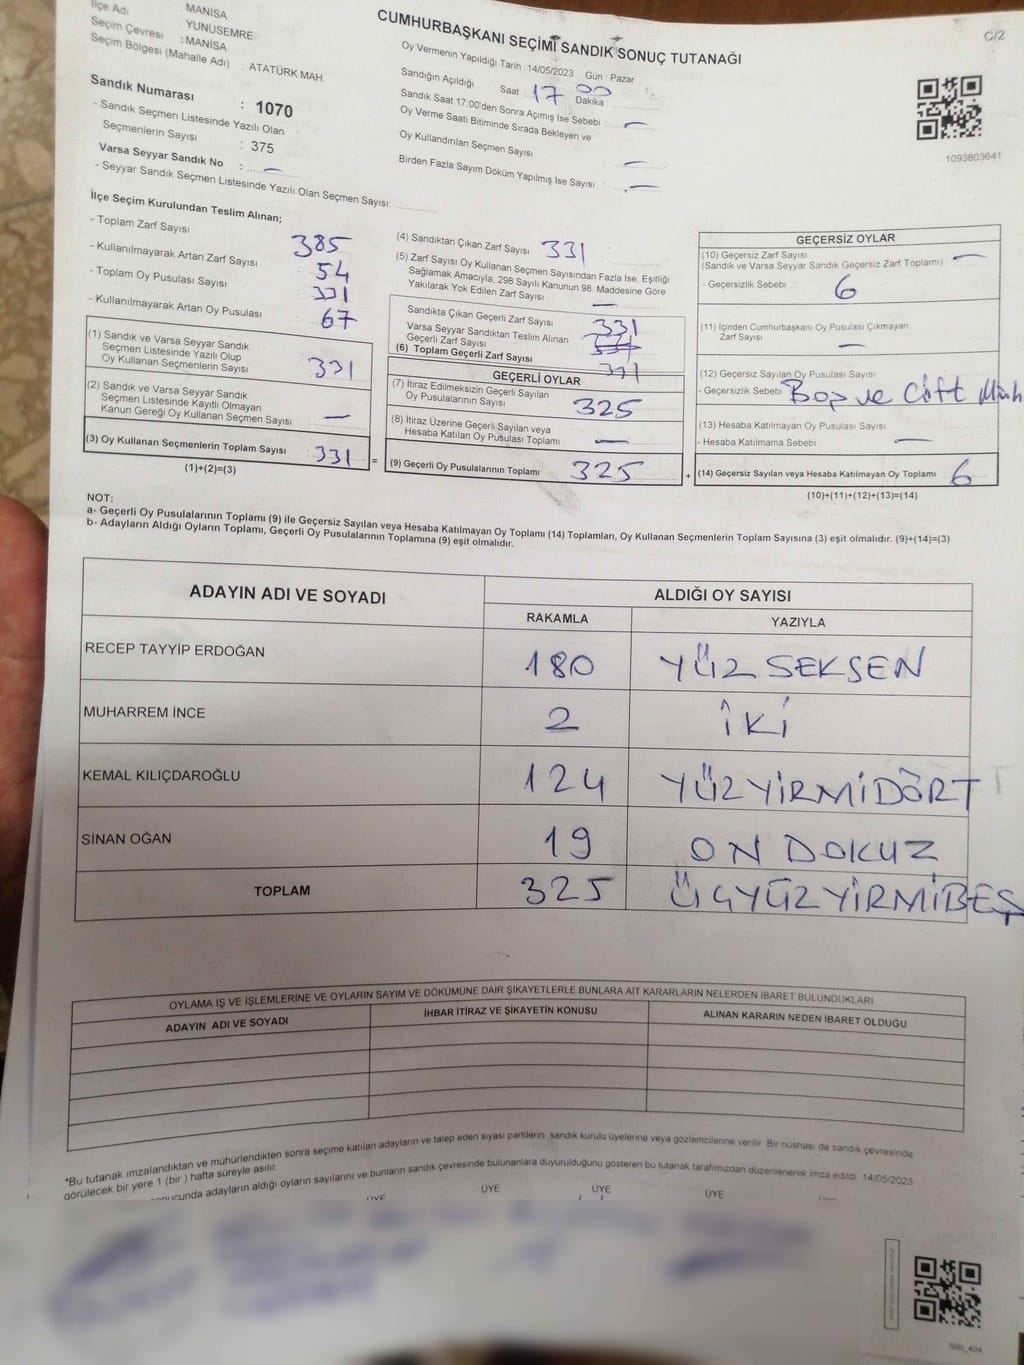 İlçe Adı MANİSA
Seçim Çevresi YUNUSEMRE
Seçim Bölgesi (Mahalle Adı) : MANİSA
: ATATÜRK MAH.
C/2
CUMHURBAŞKANI SEÇİMİ SANDIK SONUÇ TUTANAĞI
Oy Vermenin Yapıldığı Tarih : 14/05/2023 Gün : Pazar
Sandığın Açıldığı Saat 17 Dakika 00
Sandık Saat 17:00'den Sonra Açımış İse Sebebi : —
Oy Verme Saati Bitiminde Sırada Bekleyen ve
Oy Kullandırılan Seçmen Sayısı : —
Birden Fazla Sayım Döküm Yapılmış İse Sayısı : —
1093803641
Sandık Numarası : 1070
- Sandık Seçmen Listesinde Yazılı Olan
Seçmenlerin Sayısı : 375
Varsa Seyyar Sandık No : —
- Seyyar Sandık Seçmen Listesinde Yazılı Olan Seçmen Sayısı: ............
İlçe Seçim Kurulundan Teslim Alınan;
- Toplam Zarf Sayısı 385
- Kullanılmayarak Artan Zarf Sayısı : 54
- Toplam Oy Pusulası Sayısı :
- Kullanılmayarak Artan Oy Pusulası : 67
(1) Sandık ve Varsa Seyyar Sandık
Seçmen Listesinde Yazılı Olup
Oy Kullanan Seçmenlerin Sayısı : 331
(2) Sandık ve Varsa Seyyar Sandık
Seçmen Listesinde Kayıtlı Olmayan
Kanun Gereği Oy Kullanan Seçmen Sayısı : —
(3) Oy Kullanan Seçmenlerin Toplam Sayısı : 331
(1)+(2)=(3)
(4) Sandıktan Çıkan Zarf Sayısı : 331
(5) Zarf Sayısı Oy Kullanan Seçmen Sayısından Fazla İse, Eşitliği
Sağlamak Amacıyla; 298 Sayılı Kanunun 98. Maddesine Göre
Yakılarak Yok Edilen Zarf Sayısı : —
Sandıkta Çıkan Geçerli Zarf Sayısı : 331
Varsa Seyyar Sandıktan Teslim Alınan
Geçerli Zarf Sayısı :
(6) Toplam Geçerli Zarf Sayısı 331
GEÇERLİ OYLAR
(7) İtiraz Edilmeksizin Geçerli Sayılan
Oy Pusulalarının Sayısı : 325
(8) İtiraz Üzerine Geçerli Sayılan veya
Hesaba Katılan Oy Pusulası Toplamı : —
= (9) Geçerli Oy Pusulalarının Toplamı : 325
GEÇERSİZ OYLAR
(10) Geçersiz Zarf Sayısı
(Sandık ve Varsa Seyyar Sandık Geçersiz Zarf Toplamı) : —
- Geçersizlik Sebebi : 6
(11) İçinden Cumhurbaşkanı Oy Pusulası Çıkmayan
Zarf Sayısı : —
(12) Geçersiz Sayılan Oy Pusulası Sayısı :
- Geçersizlik Sebebi : Boş ve Çift
(13) Hesaba Katılmayan Oy Pusulası Sayısı :
- Hesaba Katılmama Sebebi : —
+ (14) Geçersiz Sayılan veya Hesaba Katılmayan Oy Toplamı : 6
(10)+(11)+(12)+(13)=(14)
NOT:
a- Geçerli Oy Pusulalarının Toplamı (9) ile Geçersiz Sayılan veya Hesaba Katılmayan Oy Toplamı (14) Toplamları, Oy Kullanan Seçmenlerin Toplam Sayısına (3) eşit olmalıdır. (9)+(14)=(3)
b- Adayların Aldığı Oyların Toplamı, Geçerli Oy Pusulalarının Toplamına (9) eşit olmalıdır.
ADAYIN ADI VE SOYADI ALDIĞI OY SAYISI
RAKAMLA YAZIYLA
RECEP TAYYİP ERDOĞAN 180 YÜZ SEKSEN
MUHARREM İNCE 2 İKİ
KEMAL KILIÇDAROĞLU 124 YÜZYİRMİDÖRT
SİNAN OĞAN 19 ON DOKUZ
TOPLAM 325 ÜÇYÜZYİRMİBEŞ
OYLAMA İŞ VE İŞLEMLERİNE VE OYLARIN SAYIM VE DÖKÜMÜNE DAİR ŞİKAYETLERLE BUNLARA AİT KARARLARIN NELERDEN İBARET BULUNDUKLARI
ADAYIN ADI VE SOYADI İHBAR İTİRAZ VE ŞİKAYETİN KONUSU ALINAN KARARIN NEDEN İBARET OLDUĞU
*Bu tutanak imzalandıktan ve mühürlendikten sonra seçime katılan adayların ve talep eden siyasi partilerin sandık kurulu üyelerine veya gözlemcilerine verilir. Bir nüshası da sandık çevresinde
görülecek bir yere 1 (bir) hafta süreyle asılır.
adayların aldığı oyların sayılarını ve bunların sandık çevresinde bulunanlara duyurulduğunu gösteren bu tutanak tarafımızdan düzenlenerek imza edildi. 14/05/2023
ÜYE ÜYE ÜYE ÜYE